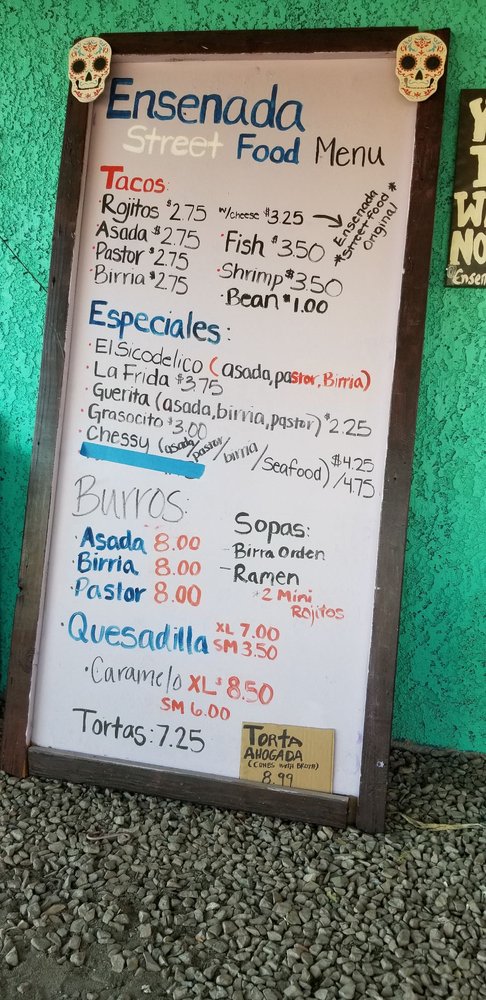 Ensenada
Street Food Menu
Tacos:
Rojitos $2.75 w/cheese $3.25 → Ensenada *Street food* Original
· Asada $2.75
· Pastor $2.75
· Birria $2.75
· Fish $3.50
· Shrimp $3.50
· Bean $1.00
Especiales:
· El Sicodelico (asada, pastor, Birria)
· La Frida $3.75
· Guerita (asada, birria, pastor) $2.25
· Grasocito $3.00
· Chessy (asada/pastor/birria/Seafood) $4.25/4.75
Burros:
· Asada 8.00
· Birria 8.00
· Pastor 8.00
Sopas:
- Birra Orden
- Ramen
+2 Mini
Rojitos
· Quesadilla XL 7.00
SM 3.50
· Caramelo XL $8.50
SM 6.00
Tortas: 7.25
TORTA
AHOGADA
(COMES WITH BROTH)
8.99
NO
Ensen